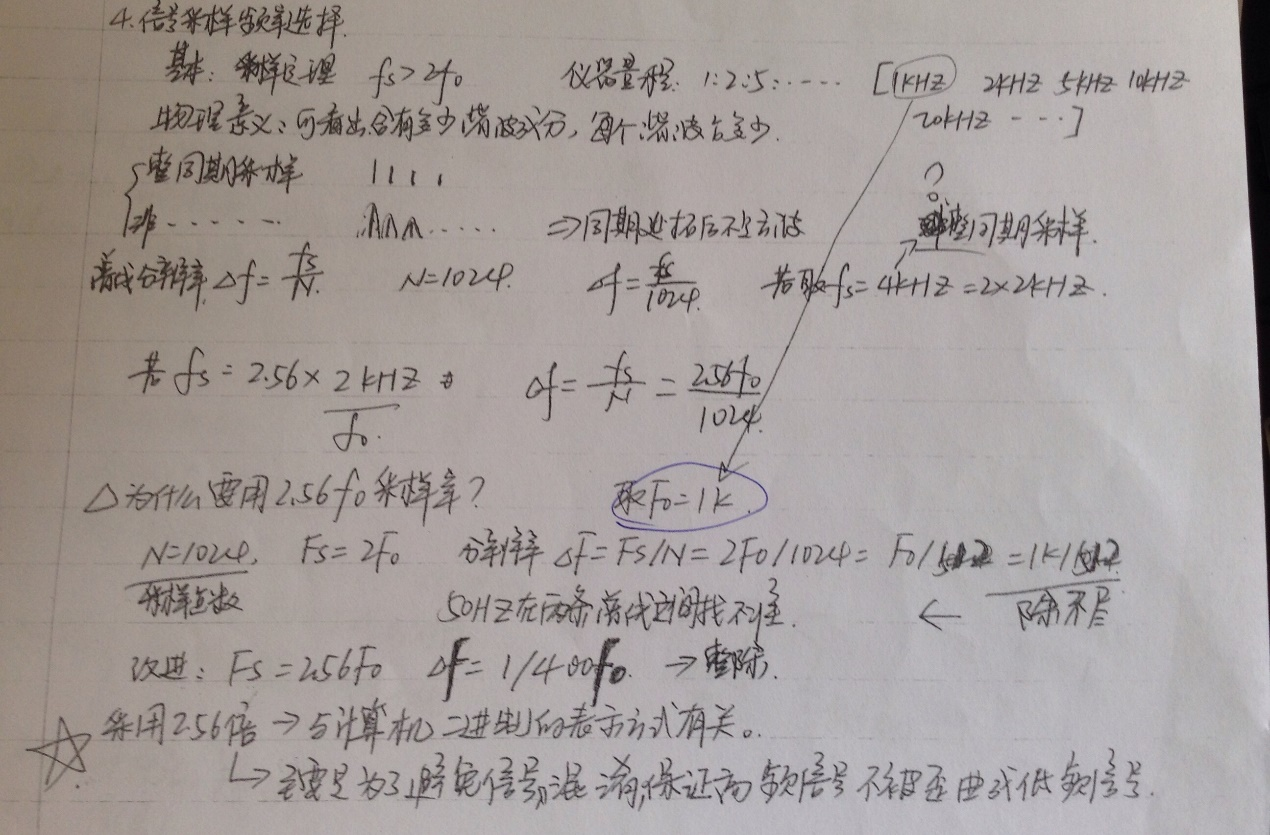 4.信号采样频率选择.
基本: 采样定理 fs>2f₀ 仪器量程: 1:2:5:····· [1kHZ 2kHZ 5kHZ 10kHZ
20kHZ ---]
物理意义: 可看出含有多少谐波成分, 每个谐波占多少.
整周期采样
非 · · · · · · ⇒周期延拓后不 整周期采样.
?
离线分辨率 Δf=fs/N. N=1024. Δf=fs/1024. 若取fs=4kHZ=2×2kHZ.
若 fs=2.56×2kHZ Δf=fs/N=2.56f₀/1024.
f₀.
△为什么要用2.56f₀采样率? 取F₀=1K.
N=1024, Fs=2F₀ 分辨率 ΔF=Fs/N=2F₀/1024=F₀/512=1K/512
采样点数 50HZ在两条离线之间找不准. ← 除不尽
改进: Fs=2.56F₀ Δf=1/400f₀. →整除.
☆ 采用2.56倍→与计算机二进制的表示方式有关。
↳主要是为了避免信号混淆,保证高频信号不被歪曲成低频信号.